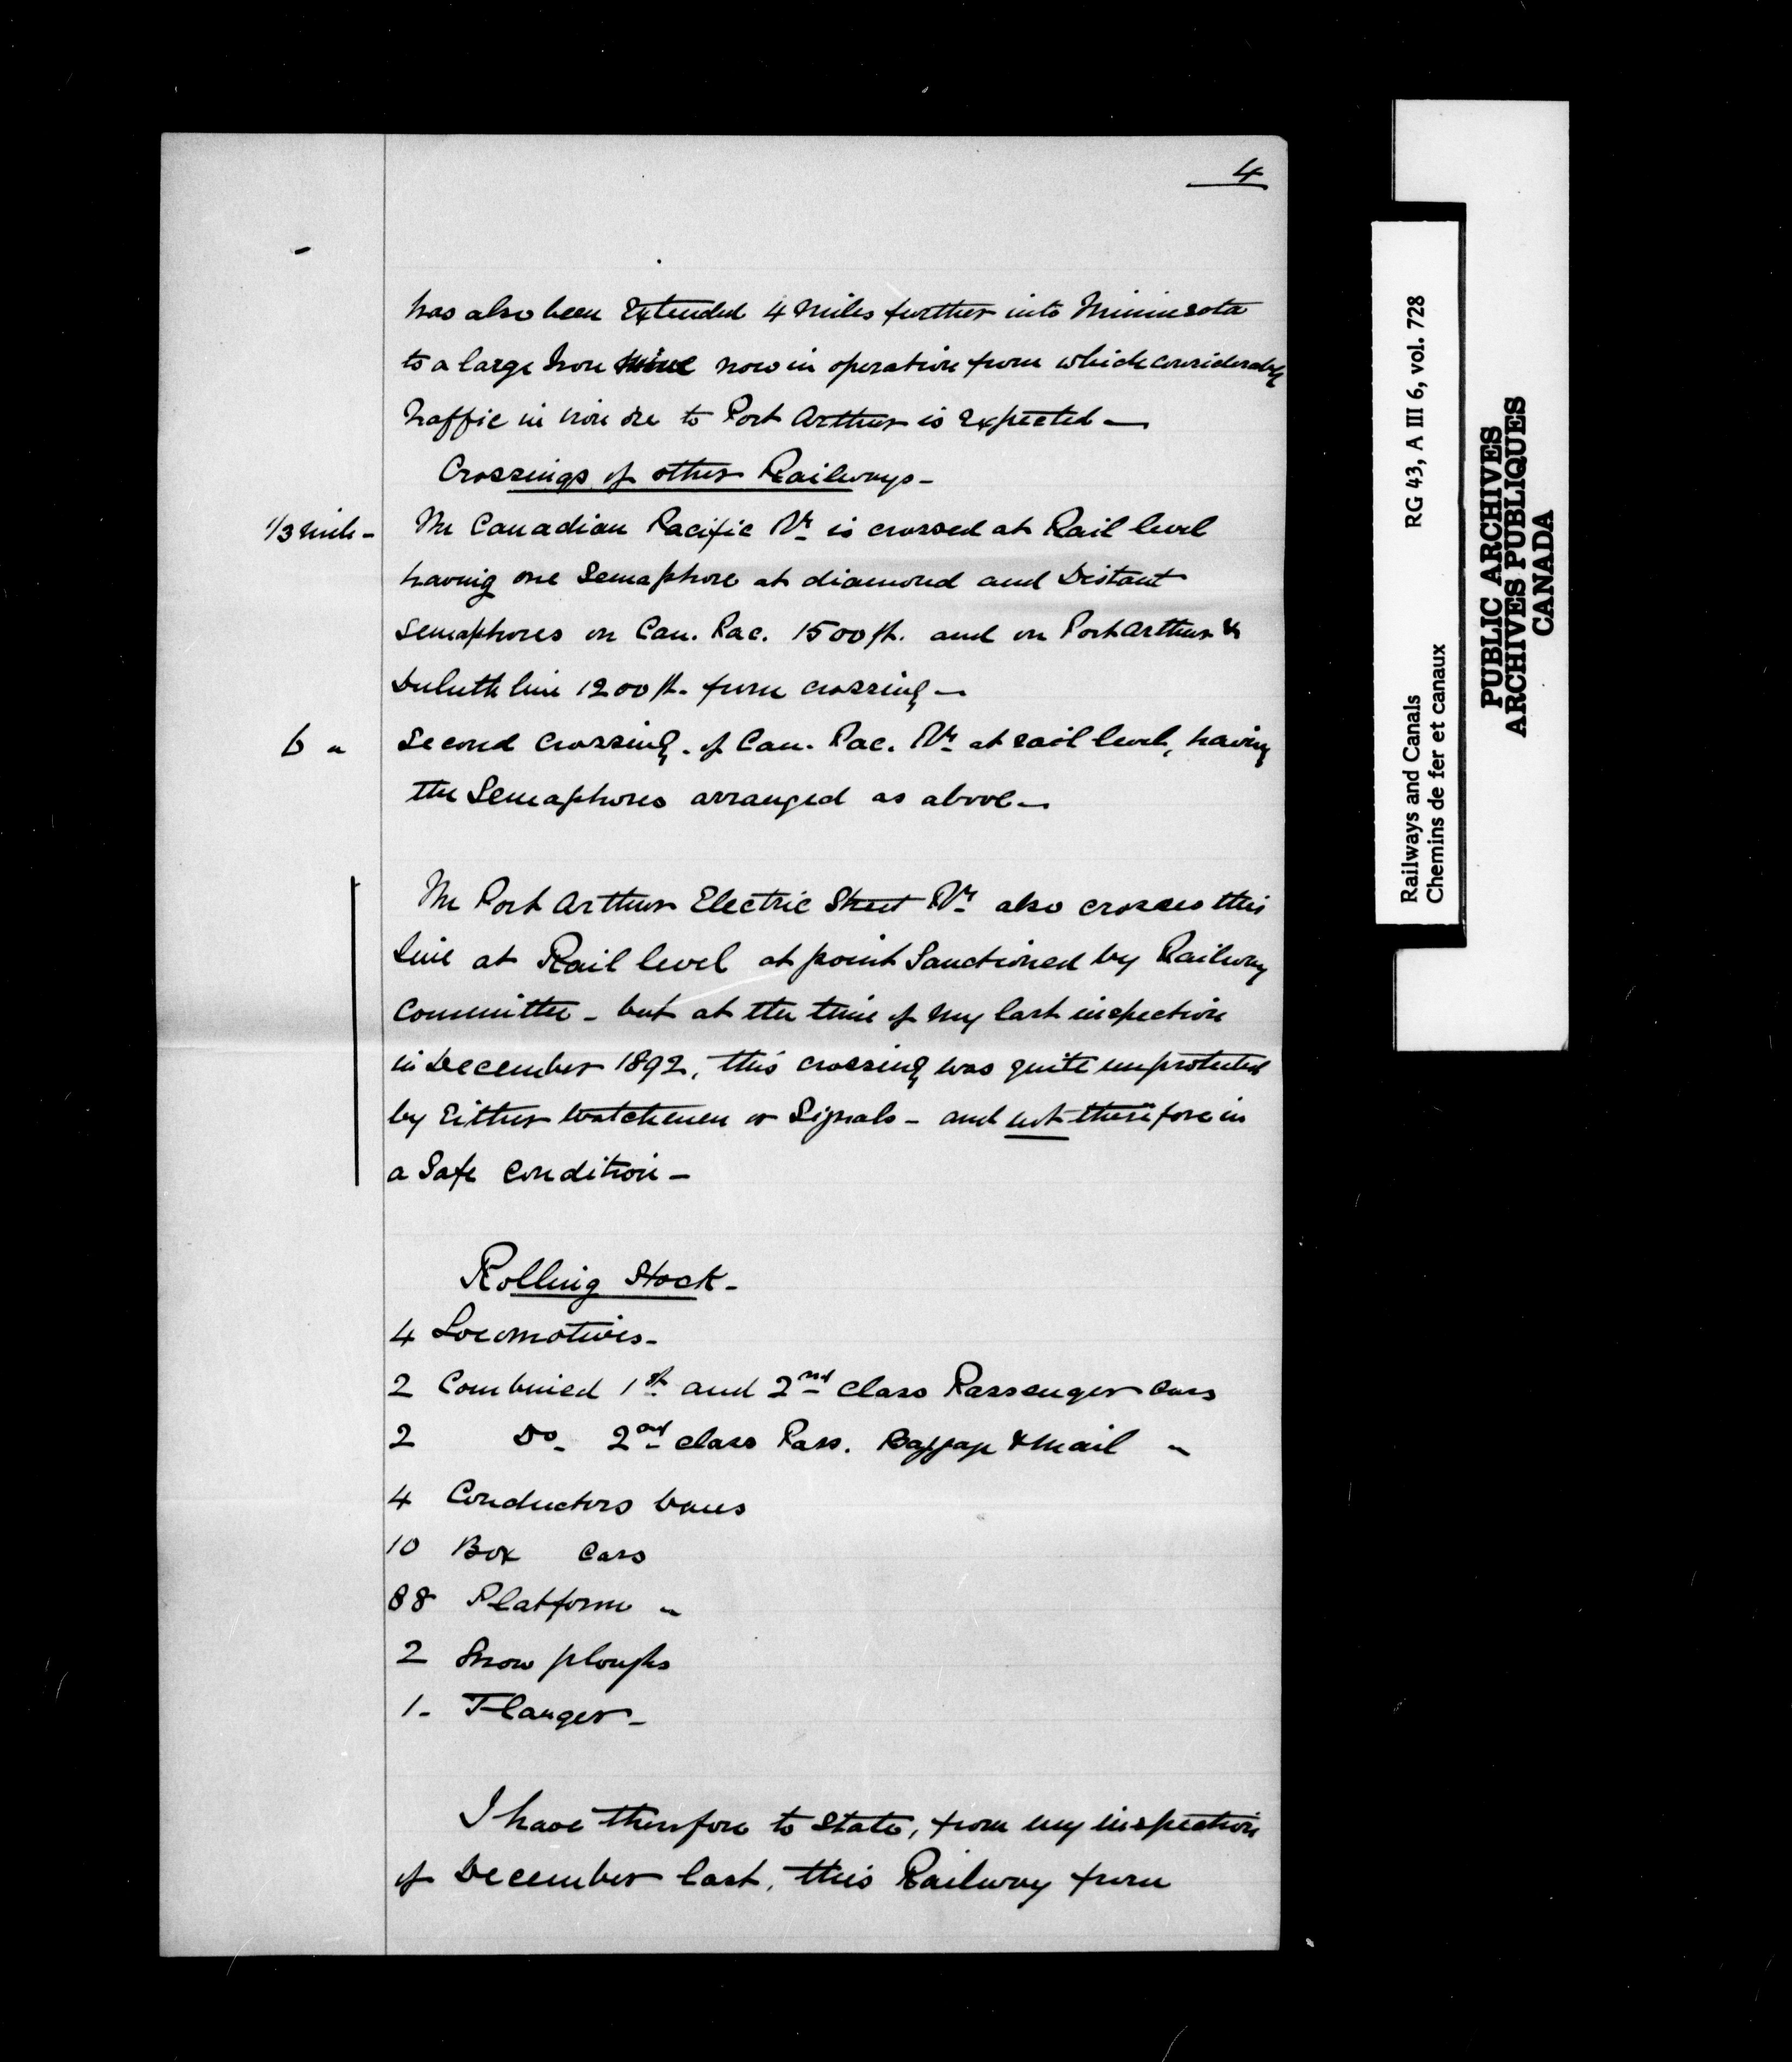 4
has also been Extended 4 miles further into Minnesota
to a large Iron mine now in operation from which considerable
Traffic in iron ore to Port Arthur is Expected —
Crossings of other Railways -
1/3 mile - The Canadian Pacific Ry is crossed at Rail level
having one Semaphore at diamond and Distant
Semaphores on Can. Pac. 1500 ft. and on Port Arthur &
Duluth line 1200 ft. from crossing —
6 " Second Crossing. of Can. Pac. Ry at rail level, having
the Semaphores arranged as above —
The Port Arthur Electric Street Ry also crosses this
Line at Rail level at point Sanctioned by Railway
Committee - but at the time of my last inspection
in December 1892, this crossing was quite unprotected
by Either Watchmen or Signals - and not therefore in
a Safe Condition -
Rolling Stock -
4 Locomotives -
2 Combined 1st and 2nd class Passenger Cars
2 Do - 2nd class Pass. Baggage & Mail "
4 Conductors Vans
10 Box Cars
88 Platform "
2 Snow ploughs
1 - Flanger -
I have therefore to State, from my inspection
of December last, this Railway from
Railways and Canals RG 43, A III 6, vol. 728
Chemins de fer et canaux
PUBLIC ARCHIVES
ARCHIVES PUBLIQUES
CANADA